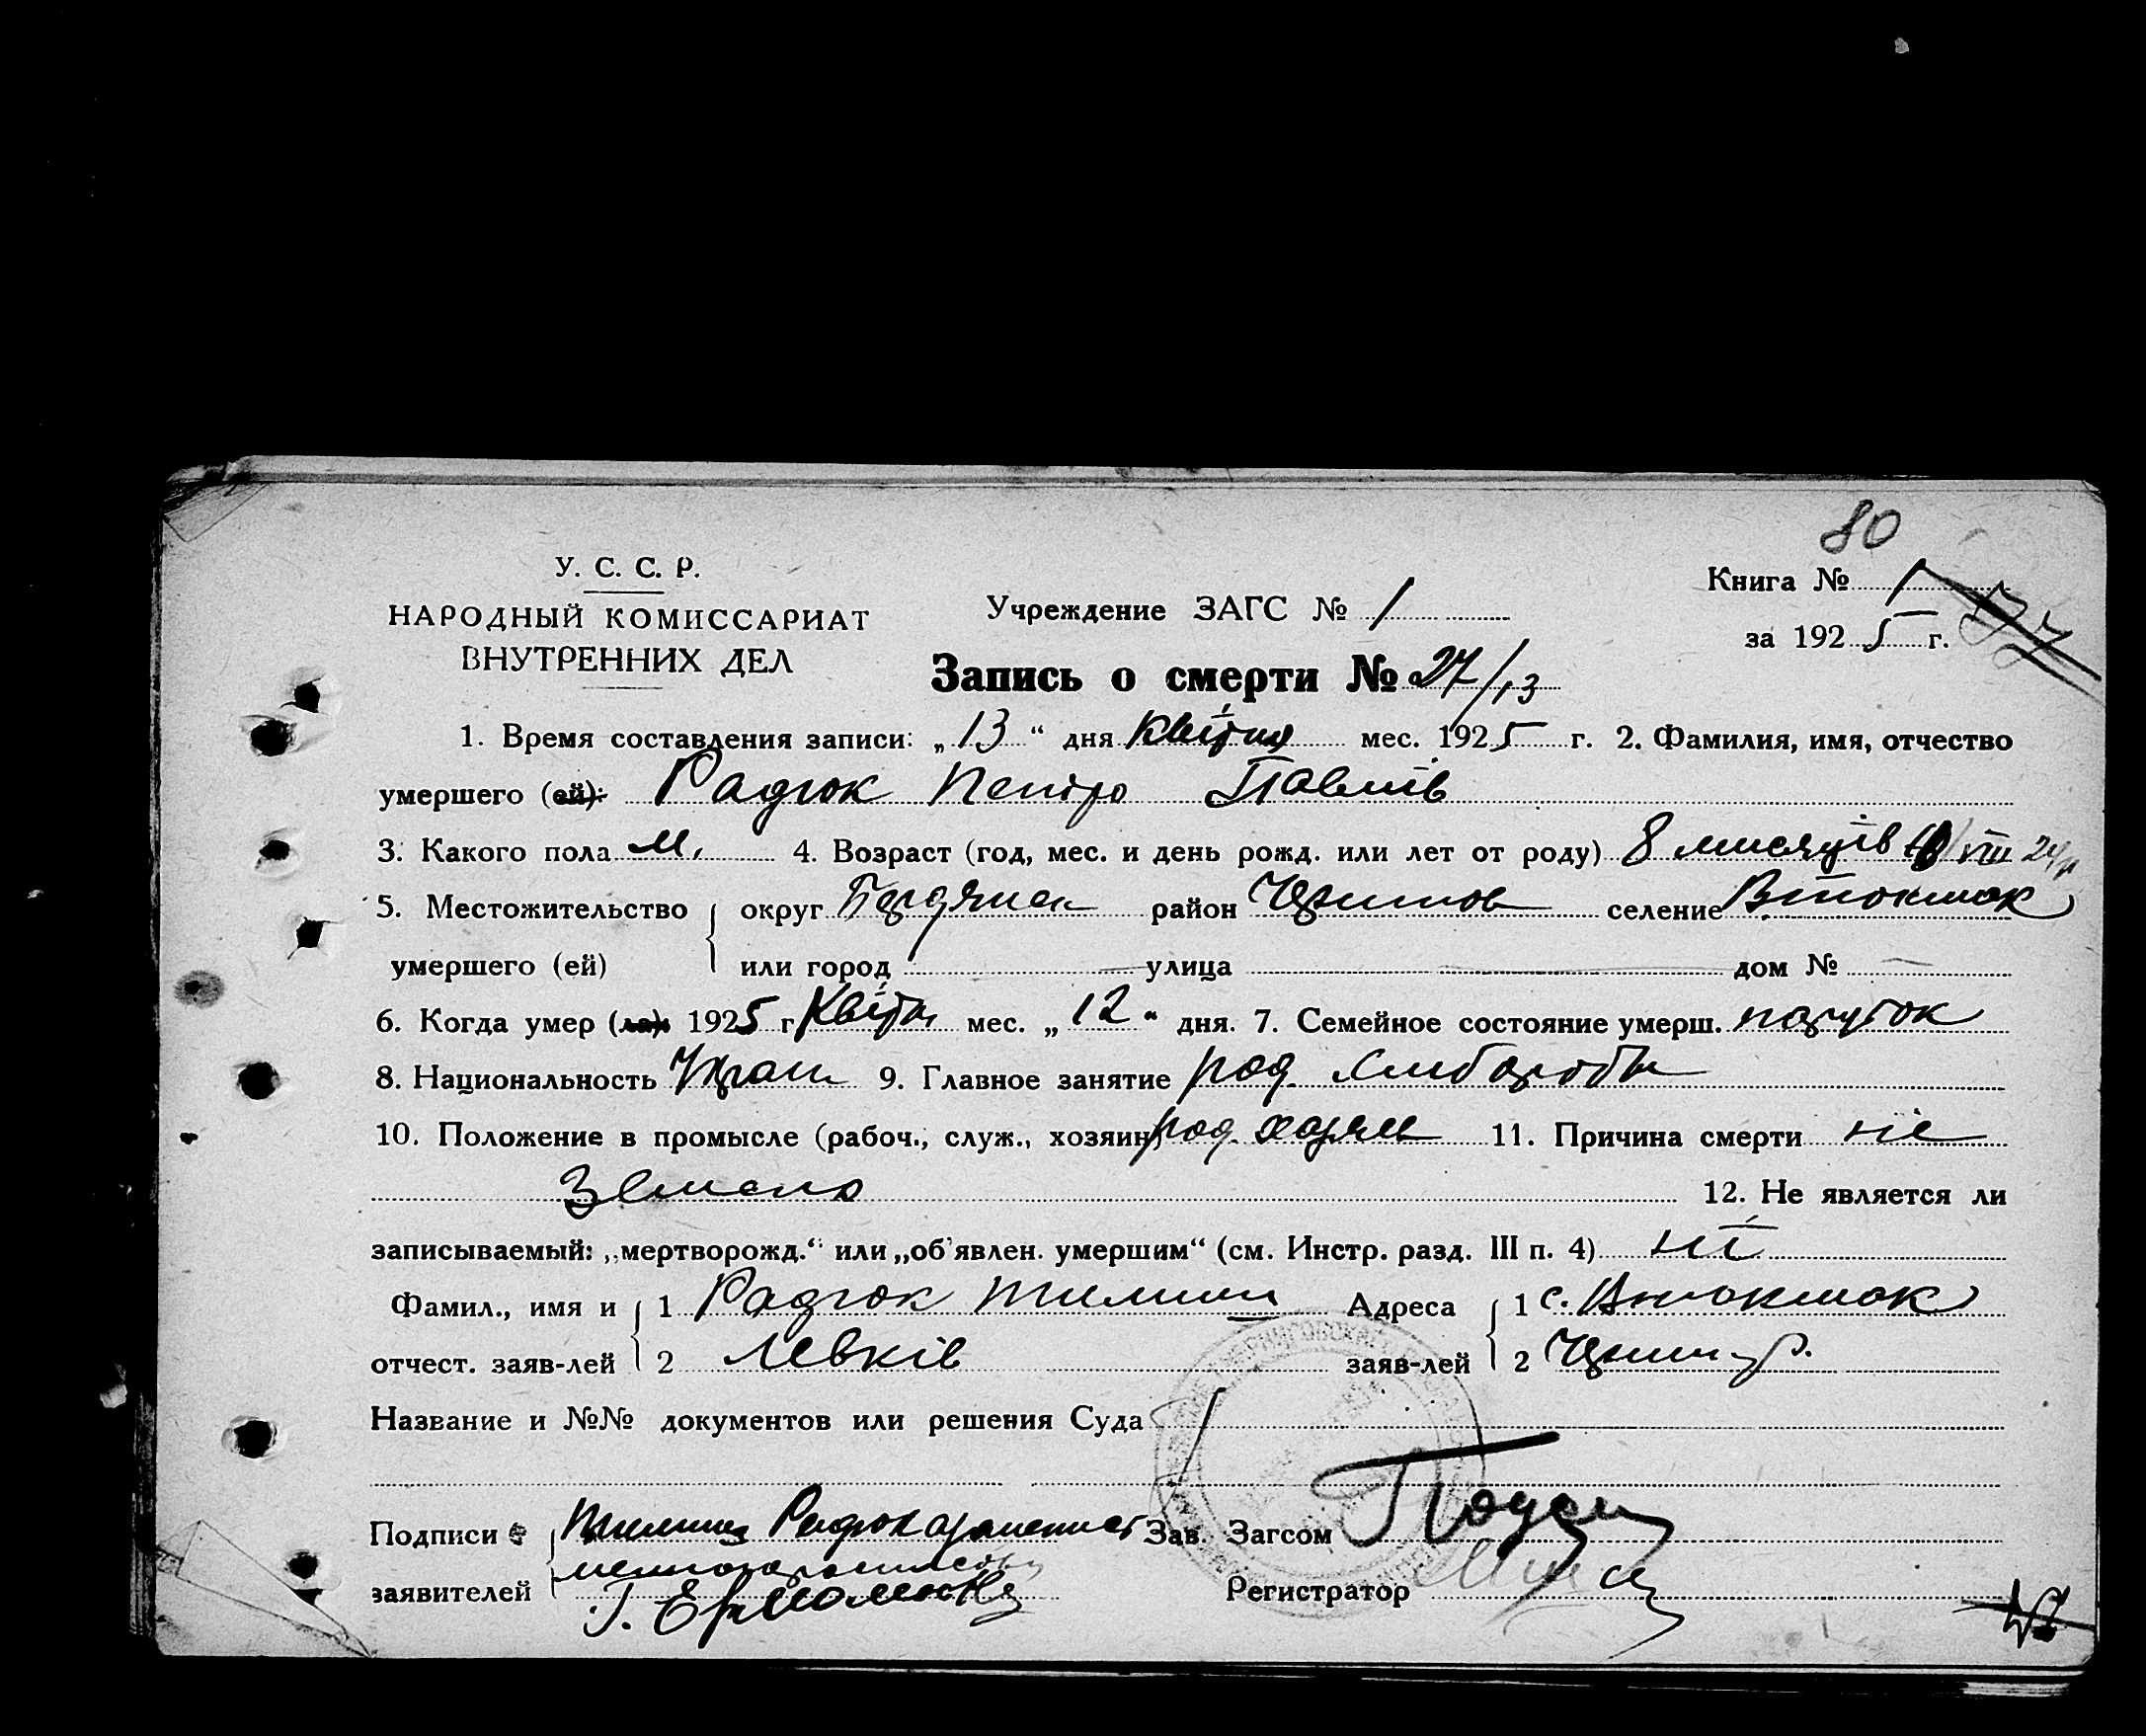 80
У. С. С. Р.
НАРОДНЫЙ КОМИССАРИАТ
ВНУТРЕННИХ ДЕЛ
Учреждение ЗАГС № 1
Книга № 1
за 1925 г.
77
Запись о смерти № 27/13
1. Время составления записи: „13“ дня квітня мес. 1925 г. 2. Фамилия, имя, отчество
умершего (ей): Радюк Петро Павлів
3. Какого пола м. 4. Возраст (год, мес. и день рожд. или лет от роду) 8 мисяців VIII 24
5. Местожительство округ район селение В. Токмак
умершего (ей) или город улица дом №
6. Когда умер (ла) 1925 г. Квітн мес. „12“ дня. 7. Семейное состояние умерш. парубок
8. Национальность Украін 9. Главное занятие род. хлибороби
10. Положение в промысле (рабоч., служ., хозяин) род. хазяів 11. Причина смерти не
звисно
12. Не является ли
записываемый: „мертворожд.“ или „об'явлен. умершим“ (см. Инстр. разд. III п. 4) ні
Фамил., имя и 1 Радюк Адреса 1 с. Втокмак
отчест. заяв-лей 2 Левків заяв-лей 2
Название и №№ документов или решения Суда
Подписи Радюк Зав. Загсом
заявителей Г. Регистратор